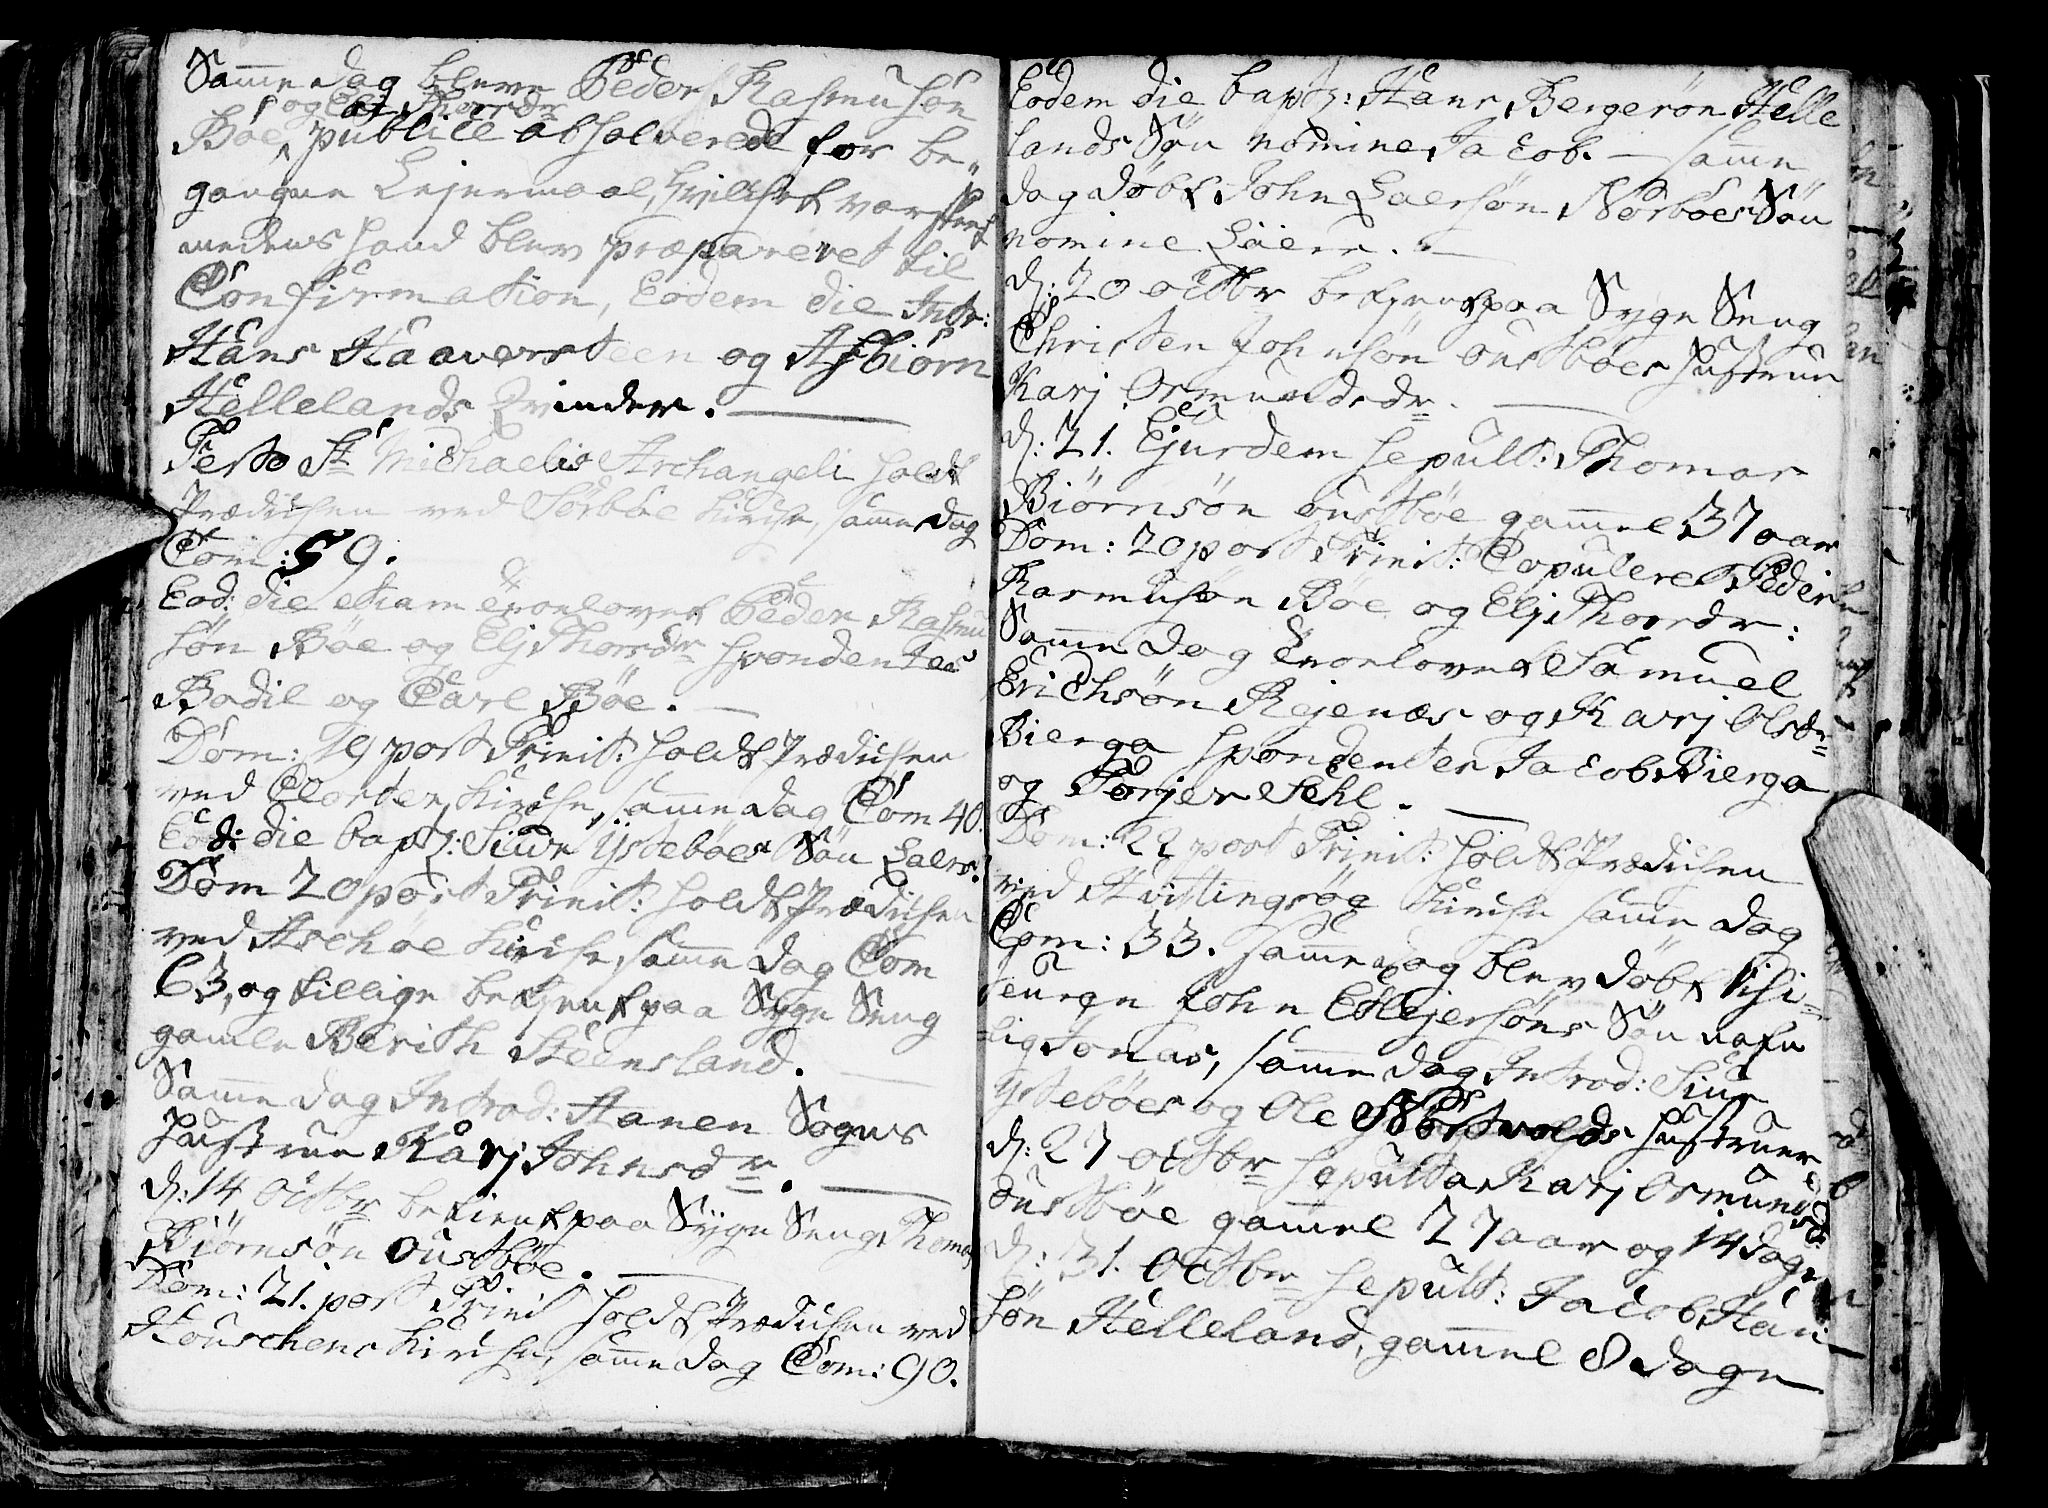 Samme dag bleve Peder Rasmusøn
og Elj Thorsdr
Bøe publice absolverede for be„
gangne Leyermaal, hvilchet qvar strax
medens hand blev præparéret til
Confirmation, Eodem die Intr:
Hans Haaversteen og Asbiørn
Hellelands Qvinder.
Festo St Michaelis Archangeli holdt
Prædichen ved Sørbøe Kirche, samme dag
Com: 59.
Eod: die etiam Trorlovet Peder Rasmu
søn Bøe og Elj Thorsdr spondentes
Bodil og Carl Bøe.
Dom: 19 post Trinit: holdt Prædichen
ved Closter Kirche, samme dag Com 40.
Eod: die bapz: Siur Ystebøes Søn Laers.
Dom 20 post Trinit: holdt Prædichen
ved Aschøe Kirche, samme dag Com
63, og tillige betient paa Syge Seng
gamle Berith Steensland.
Samme dag Introd: Hanen Sognes
Hustrue Karj Johnsdr.
d: 14 Octbr betient paa Syge Seng Thomas
Biørnsøn Oustbøe.
Dom: 21. post Trinit holdt Prædichen ved
Houschens Kirche, samme dag Com: 90.
Eodem die bapz: Hans Bergesøn Helle
lands Søn nomine Jacob. — samme
dag døbt John Laersøn Nørbøes Søn
nomine Laers.
d: 20 octbr betient paa Syge Seng
Christen Johnsøn oustbøes Hustrue
Karj Ormundsdr.
d: 21. Ejusdem sepult: Thomas
Biørnsøn oustbøe gammel 37 aar
Dom: 20 post Trinit: Copuleret Peder
Rasmusøn Bøe og Elj Thorsdr:
Samme dag Trorlovet Samuel
Erichsøn Rejenæs og Karj Olsdr
Bierga spondenter Jacob Bierga
og Torjer Sehl.
Dom: 22 post Trinit: holdt Prædichen
ved Hvittingsøe Kirche samme dag
Com: 33. samme dag blev døbt
John Søn nafn
lig Jonas, samme dag Introd: Siur
Ystebøes og Ole Hustruer
d: 27 octbr sepulta Karj Ormundsd:
Oustbøe gammel 27 aar og 14 dage
d: 31. Octbr sepult: Jacob Han
søn Helleland, gammel 8 dage